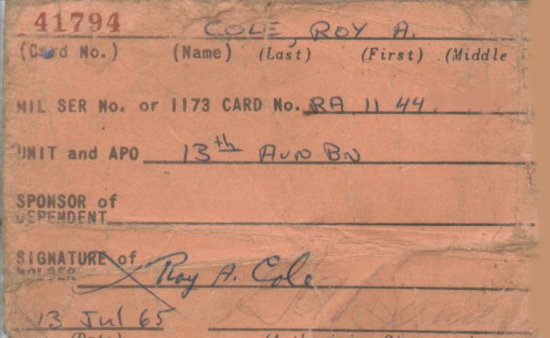 41794 COLE, ROY A.
(Card No.) (Name) (Last) (First) (Middle
MIL SER No. or 1173 CARD No. RA 11 44
UNIT and APO 13th AVN BN
SPONSOR of
DEPENDENT
SIGNATURE of Roy A. Cole
HOLDER
13 Jul 65
(Date)